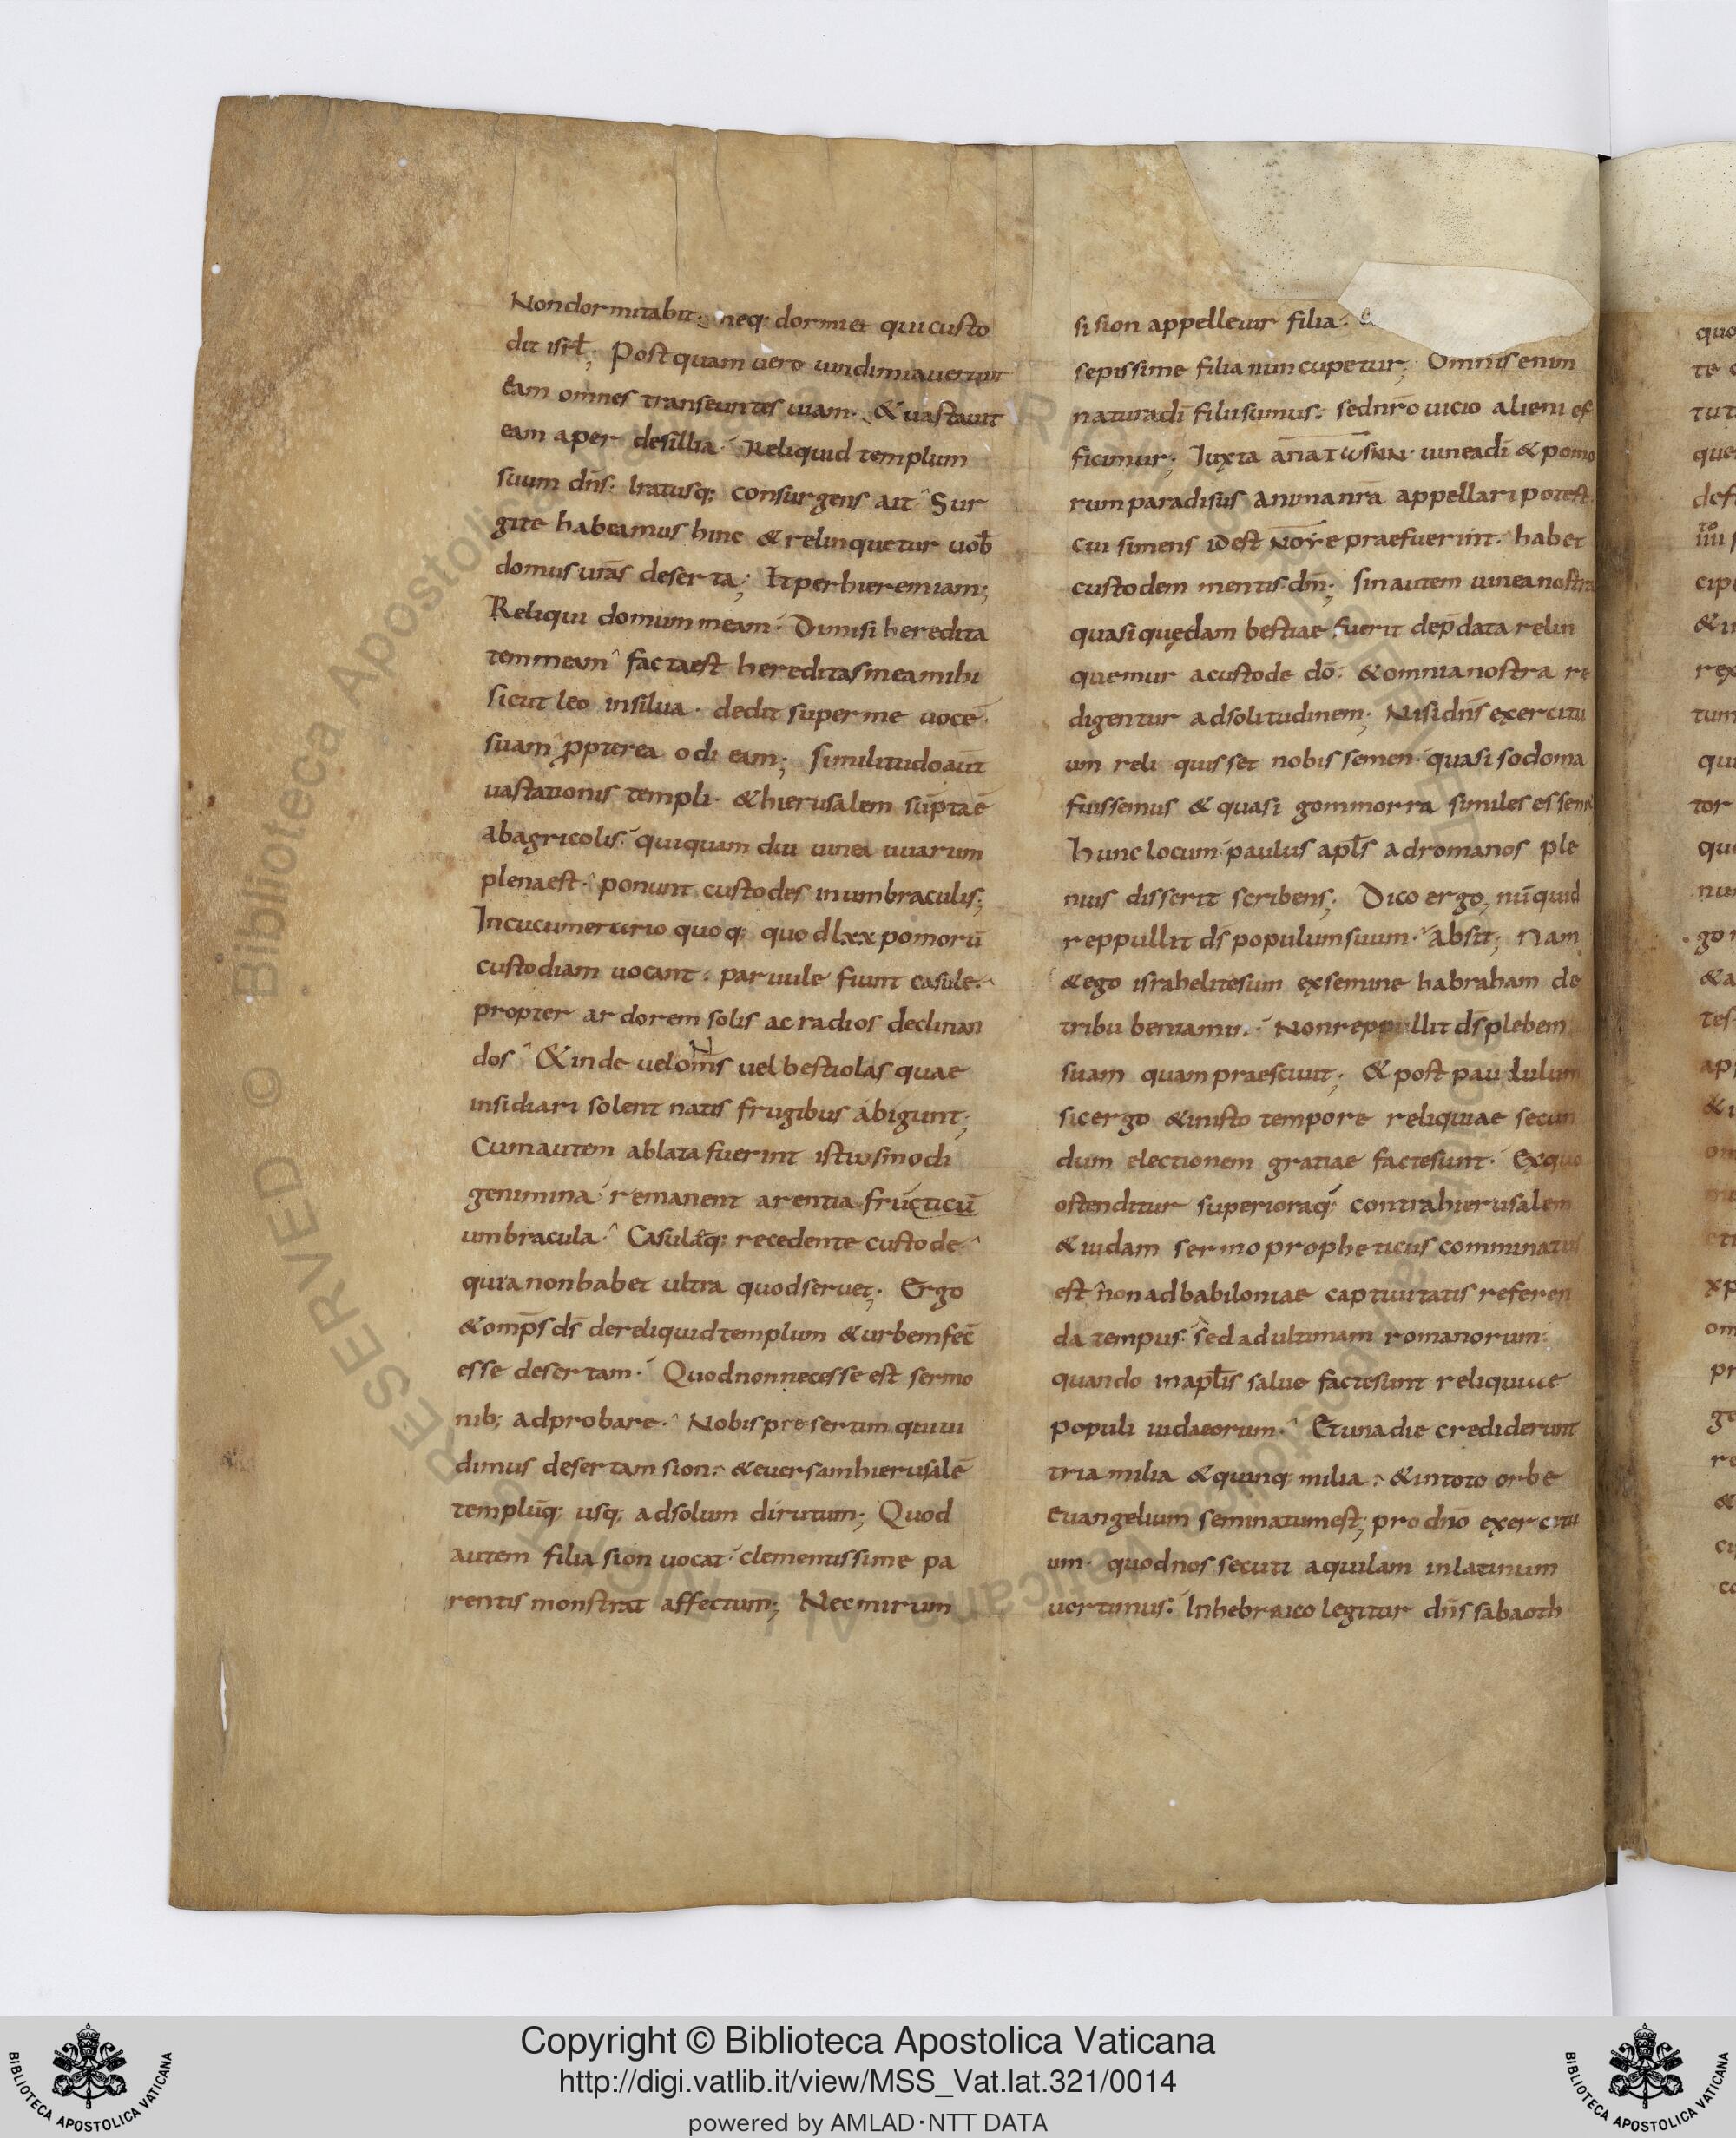 Nondormitabit· neq· dormiet qui custo
dit isrł; Postquam uero uindimiauerunt
eam omnes transeuntes uiam· & uastauit
eam aper desillia· Reliquid templum
suum dn̄s· Iratusq; consurgens ait Sur
gite habeamus hinc & relinquetur uob̄
domus ur̄as deserta; Et perhieremiam;
Reliqui domum meam· Dimisi heredita
tem meam factaest hereditasmeamihi
sicut leo insilua· dedit super me uocē·
suam p̱pterea odi eam; Similitudoaut̄
uastationis templi· & hierusalem sūptaē
abagricolis· quiquam diu uinea uuarum
plenaest· ponunt custodes inumbraculis;
Incucumerario quoq; quod lxx pomorū
custodiam uocant· paruule fiunt casule·
propter ardorem solis ac radios declinan
dos & inde uel om̄s uel bestiolas quae
insidiari solent natis frugibus abigunt;
Cum autem ablata fuerint istiusmodi
genimina remanent arentia fructicū
umbracula· Casulaq; recedente custode·
quia non habet ultra quodseruet; Ergo
& omp̄s d̄s dereliquid templum & urbem fec̄
esse desertam· Quodnonnecesse est sermo
nib; adprobare· Nobis presertim quiui
dimus desertam sion· & euersam hierusalē
templūq; usq; adsolum dirutum; Quod
autem filia sion uocat clementissime pa
rentis monstrat affectum; Necmirum
si sion appelletur filia·
sepissime filia nuncupetur; Omnis enim
naturad̄i filii sumus· sedn̄ro uicio alieni ef
ficimur; Iuxta uinead̄i & pomo
rum paradisus animan̄ra appellari potest
cui simens id est praefuerint· habet
custodem mentis d̄m; sinautem uineanostra
quasi quędam bestiae fuerit dep̄data relin
quemur acustode d̄o· & omnia nostra re
digentur adsolitudinem; Nisi dn̄s exercitu
um reliquisset nobis semen· quasi sodoma
fuissemus & quasi gommorra similes essem
hunc locum paulus apl̄s adromanos ple
nius disserit scribens; Dico ergo, nūquid
reppullit d̄s populum suum· absit; Nam
& ego israhelitesum exsemine habraham de
tribu beniamin· Nonreppullit d̄s plebem
suam quam praesciuit; & post paululum
sicergo & inisto tempore reliquiae secun
dum electionem gratiae factesunt· Exquo
ostenditur superioraq; contrahierusalem
& iudam sermo propheticus comminatus
est non adbabiloniae captiuitatis referen
da tempus· sed adultimam romanorum·
quando inapl̄is salue factesunt reliquiae
populi iudaeorum· Et una die crediderunt
tria milia & quinq; milia· & intoto orbe
euangelium seminatumest; pro dn̄o exercitu
um· quodnos secuti aquilam inlatinum
uertimus· Inhebraico legitur dn̄s sabaoth
Copyright © Biblioteca Apostolica Vaticana
http://digi.vatlib.it/view/MSS_Vat.lat.321/0014
powered by AMLAD·NTT DATA
BIBLIOTECA APOSTOLICA VATICANA
BIBLIOTECA APOSTOLICA VATICANA